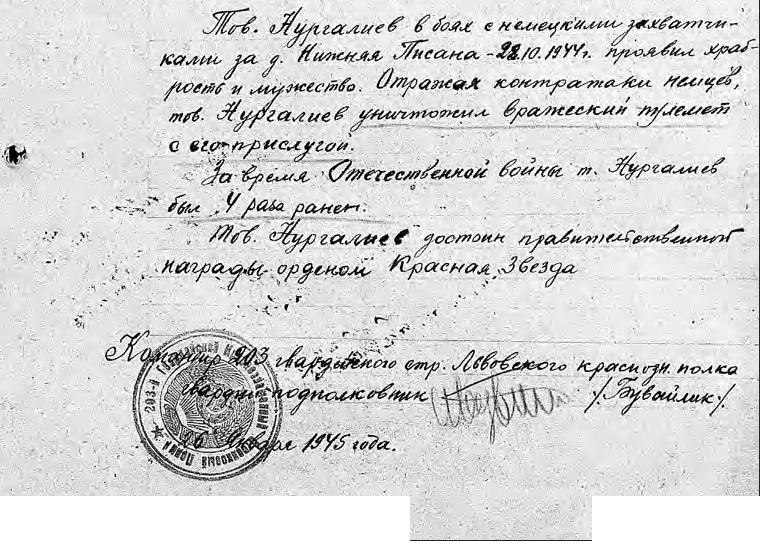 Тов. Нургалиев в боях с немецкими захватчи-
ками за д. Нижняя Писана - 28.10.1944г. проявил храб-
рость и мужество. Отражая контратаки немцев,
тов. Нургалиев уничтожил вражеский пулемет
с его прислугой.
За время Отечественной войны т. Нургалиев
был 4 раза ранен.
Тов. Нургалиев достоин правительственной
награды орденом Красная Звезда
Командир 203 гвардейского стр. Львовского краснозн. полка
гвардии подполковник /Бувайлик/.
26 января 1945 года.
203-й Гвардейский Стрелковый Полк